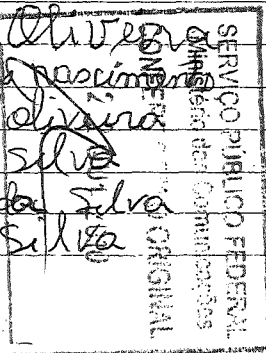 Oliveira
nascimento
oliveira
Silva
da Silva
Silva
SERVIÇO PÚBLICO FEDERAL
Ministério das Comunicações
CONFERE O ORIGINAL